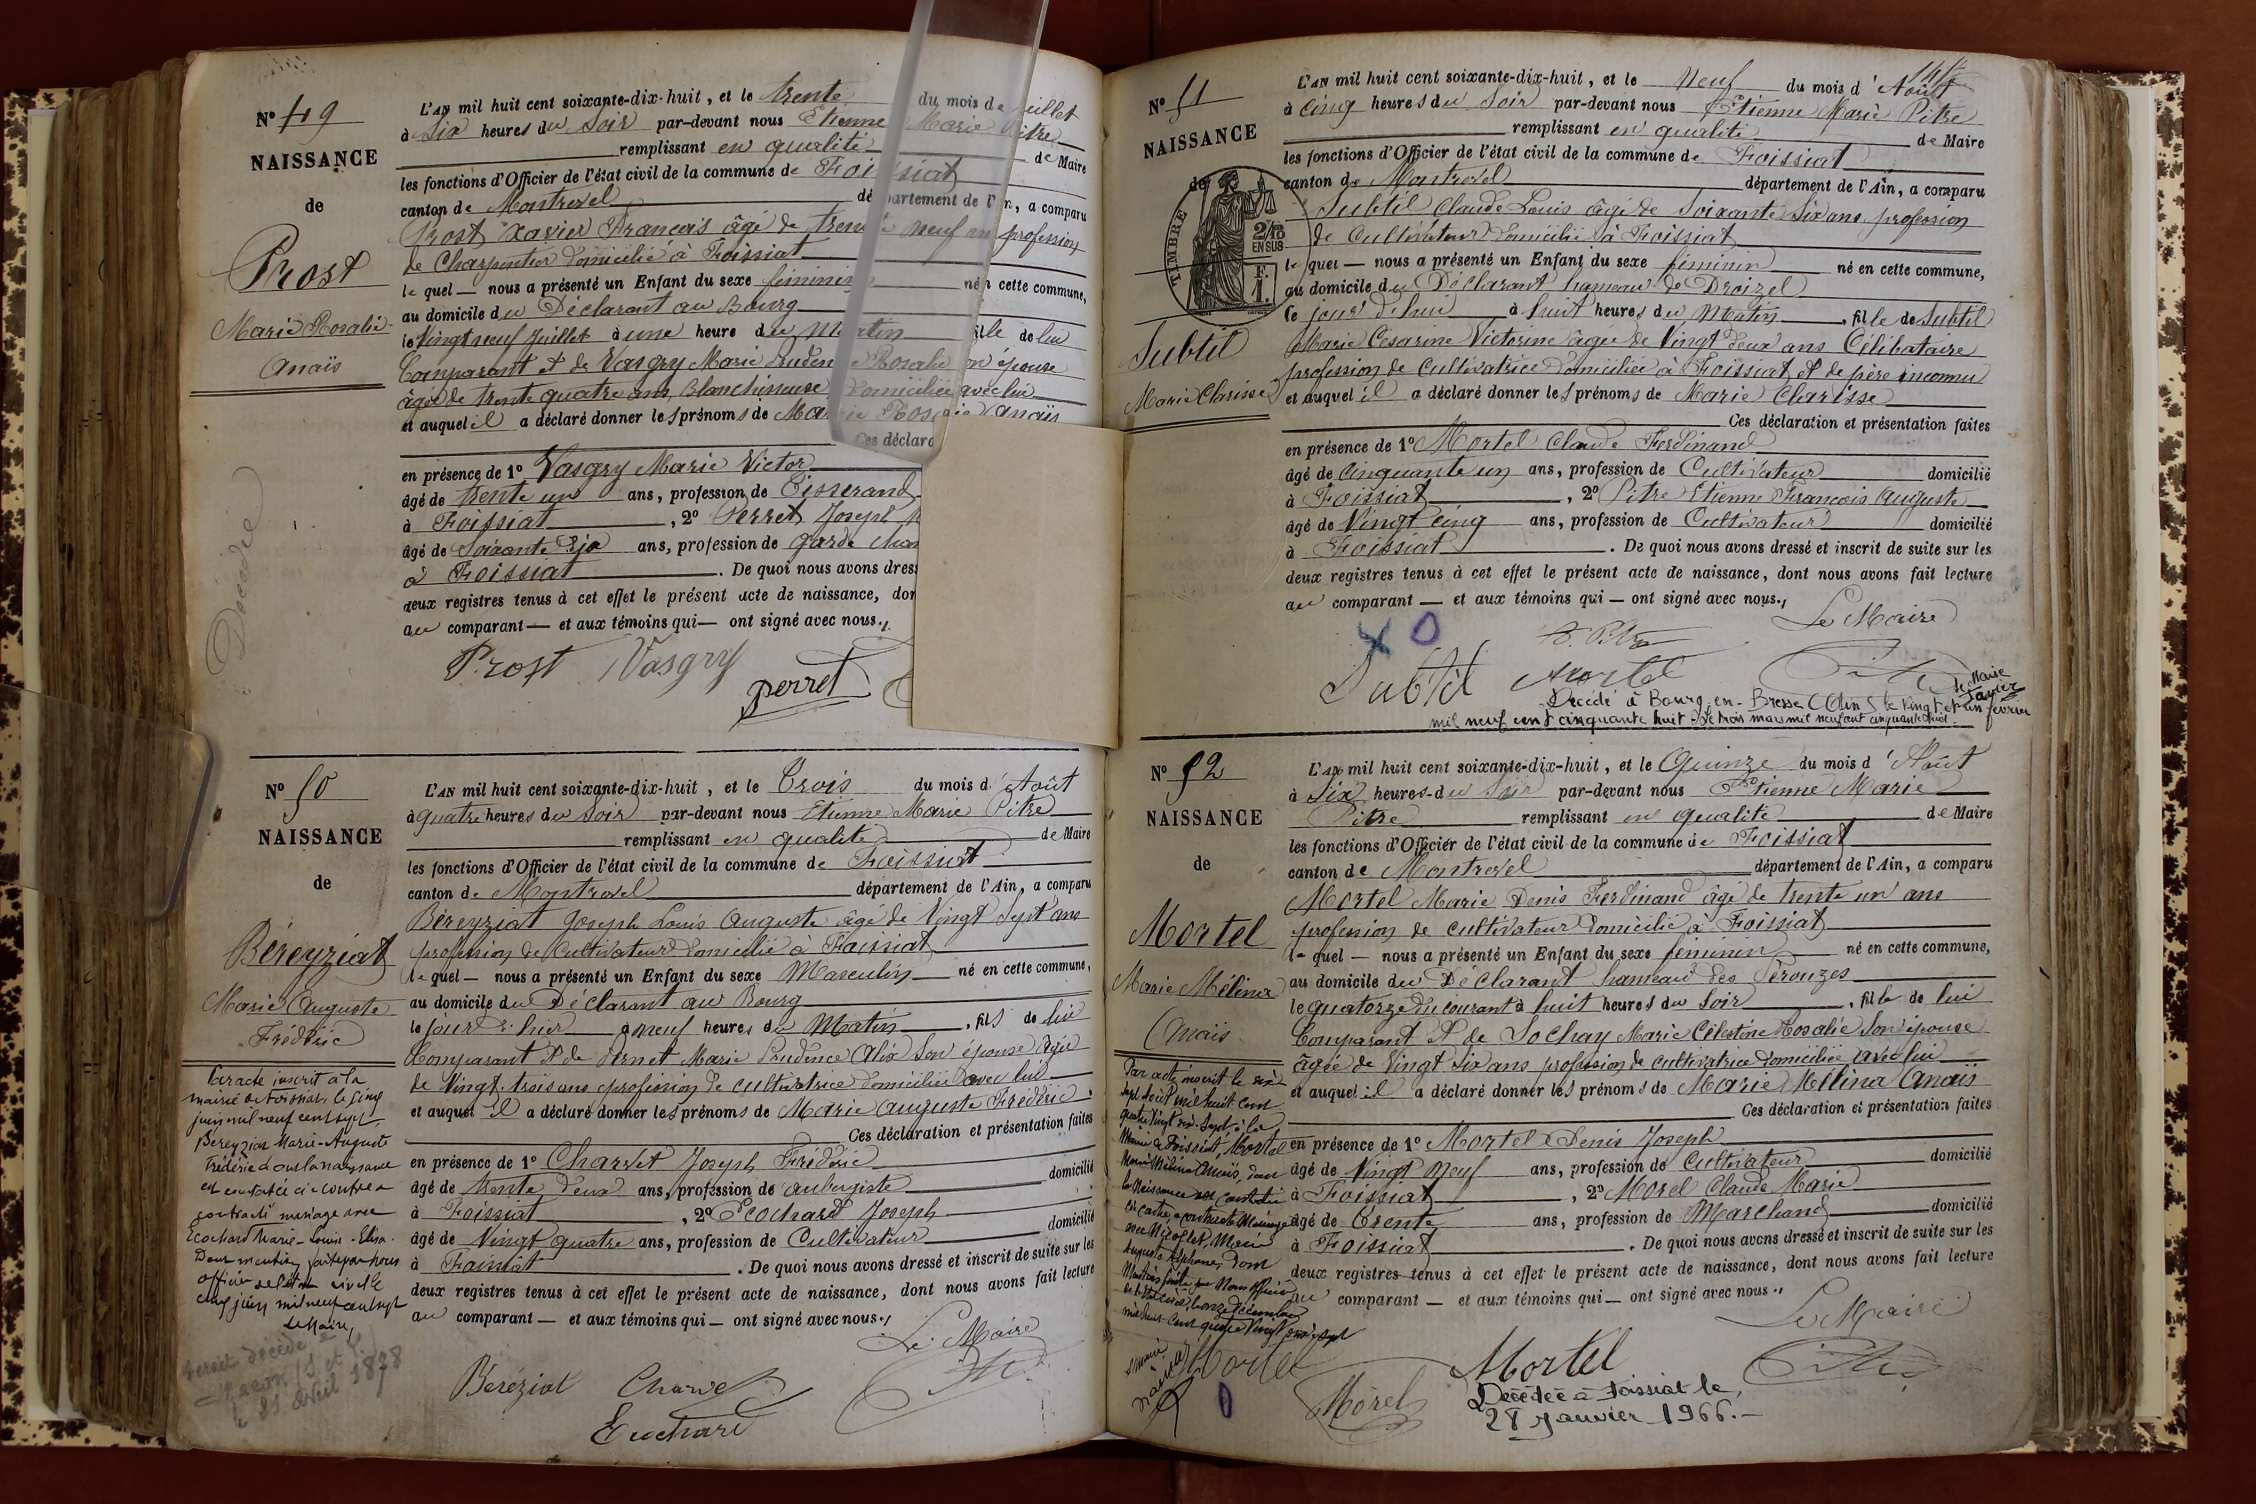 N° 49
NAISSANCE
de
Prost
Marie Rosalie
Anaïs
Décédée
L'AN mil huit cent soixante-dix-huit, et le trente du mois de Juillet
à Six heures du Soir par-devant nous Etienne Marie Pitre
remplissant en qualité de Maire
les fonctions d'Officier de l'état civil de la commune de Foissiat
canton de Montrevel département de l'Ain, a comparu
Prost Xavier François âgé de trente neuf ans profession
de Charpentier domicilié à Foissiat
le quel — nous a présenté un Enfant du sexe féminin né en cette commune,
au domicile du Déclarant au Bourg
le Vingt neuf Juillet à une heure du Matin fille de lui
Comparant et de Vasgry Marie Prudence Rosalie son épouse
âgée de trente quatre ans, Blanchisseuse domiciliée avec lui
et auquel il a déclaré donner les prénoms de Marie Rosalie Anaïs
Ces déclara
en présence de 1° Vasgry Marie Victor
âgé de trente un ans, profession de Tisserand
à Foissiat, 2° Perret Joseph
âgé de Soixante Six ans, profession de garde cham
à Foissiat. De quoi nous avons dres
deux registres tenus à cet effet le présent acte de naissance, don
au comparant — et aux témoins qui — ont signé avec nous.
Prost Vasgry
perret
N° 50
NAISSANCE
de
Béreyziat
Marie Auguste
Frédéric
Par acte inscrit à la
mairie de Foissiat le cinq
juin mil neuf cent sept
Béreyziat Marie-Auguste
Frédéric dont la naissance
est constatée ci-contre a
contracté mariage avec
Ecochard Marie-Louise-Elisa.
Dont mention faite par nous
officier de l'état civil le
cinq juin mil neuf cent sept
Le Maire,
serait décédé à
Macon (S et L)
le 21 avril 1878
L'AN mil huit cent soixante-dix-huit, et le Trois du mois d'Août
à quatre heures du Soir par-devant nous Etienne Marie Pitre
remplissant en qualité de Maire
les fonctions d'Officier de l'état civil de la commune de Foissiat
canton de Montrevel département de l'Ain, a comparu
Béreyziat Joseph Louis Auguste âgé de Vingt Sept ans
profession de Cultivateur domicilié à Foissiat
le quel — nous a présenté un Enfant du sexe Masculin né en cette commune,
au domicile du Déclarant au Bourg
le jour d'hier à neuf heures du Matin, fils de lui
Comparant et de Vernet Marie Prudence Alix Son épouse âgée
de Vingt-trois ans profession de cultivatrice domiciliée avec lui
et auquel il a déclaré donner les prénoms de Marie Auguste Frédéric.
Ces déclaration et présentation faites
en présence de 1° Charvet Joseph Frédéric
âgé de trente deux ans, profession de aubergiste domicilié
à Foissiat, 2° Ecochard Joseph
âgé de Vingt quatre ans, profession de Cultivateur domicilié
à Foissiat. De quoi nous avons dressé et inscrit de suite sur les
deux registres tenus à cet effet le présent acte de naissance, dont nous avons fait lecture
au comparant — et aux témoins qui — ont signé avec nous.
Le Maire
Béréziat Charvet
Ecochard
N° 51
NAISSANCE
de
TIMBRE
2/10
EN SUS
F.
1.
Subtil
Marie Clarisse
L'AN mil huit cent soixante-dix-huit, et le Neuf du mois d'Août
à Cinq heures du Soir par-devant nous Etienne Marie Pitre
remplissant en qualité de Maire
les fonctions d'Officier de l'état civil de la commune de Foissiat
canton de Montrevel département de l'Ain, a comparu
Subtil Claude Louis âgé de Soixante Six ans profession
de Cultivateur domicilié à Foissiat
le quel — nous a présenté un Enfant du sexe féminin né en cette commune,
au domicile du Déclarant hameau de Droizel
Ce jour d'hui à huit heures du Matin, fille de Subtil
Marie Cesarine Victorine âgée de Vingt deux ans Célibataire
profession de Cultivatrice domiciliée à Foissiat et de père inconnu
et auquel il a déclaré donner les prénoms de Marie Charisse
Ces déclaration et présentation faites
en présence de 1° Mortel Claude Ferdinand
âgé de Cinquante un ans, profession de Cultivateur domicilié
à Foissiat, 2° Pitre Etienne François Auguste
âgé de Vingt cinq ans, profession de Cultivateur domicilié
à Foissiat. De quoi nous avons dressé et inscrit de suite sur les
deux registres tenus à cet effet le présent acte de naissance, dont nous avons fait lecture
au comparant — et aux témoins qui — ont signé avec nous.
Le Maire
Subtil Mortel
Décédé à Bourg-en-Bresse (Ain) le vingt et un février
mil neuf cent cinquante huit. Le trois mars mil neuf cent cinquante huit.
N° 52
NAISSANCE
de
Mortel
Marie Mélina
Anaïs
Par acte inscrit le dix
sept Août mil huit cent
quatre vingt dix-sept à la
Mairie de Foissiat, Mortel
Marie Mélina Anaïs, dont
la Naissance est constatée
ci-contre, a contracté Mariage
avec Marie
Auguste Alphonse, Dont
Mention faite par Nous officier
de l'état civil, le onze Décembre
mil huit cent quatre vingt dix sept
L'AN mil huit cent soixante-dix-huit, et le Quinze du mois d'Août
à Six heures du Soir par-devant nous Etienne Marie
Pitre remplissant en qualité de Maire
les fonctions d'Officier de l'état civil de la commune de Foissiat
canton de Montrevel département de l'Ain, a comparu
Mortel Marie Denis Ferdinand âgé de trente un ans
profession de cultivateur domicilié à Foissiat
le quel — nous a présenté un Enfant du sexe féminin né en cette commune,
au domicile du Déclarant hameau des Pérouzes
le quatorze du courant à huit heures du Soir, fille de lui
Comparant et de Sochay Marie Célestine Rosalie Son épouse
âgée de Vingt Six ans profession de cultivatrice domiciliée avec lui
et auquel il a déclaré donner les prénoms de Marie Mélina Anaïs
Ces déclaration et présentation faites
en présence de 1° Mortel Denis Joseph
âgé de Vingt Neuf ans, profession de Cultivateur domicilié
à Foissiat, 2° Morel Claude Marie
âgé de Trente ans, profession de Marchand domicilié
à Foissiat. De quoi nous avons dressé et inscrit de suite sur les
deux registres tenus à cet effet le présent acte de naissance, dont nous avons fait lecture
au comparant — et aux témoins qui — ont signé avec nous.
Le Maire
Mortel Mortel
Morel
Décédée à Foissiat le
28 Janvier 1966.